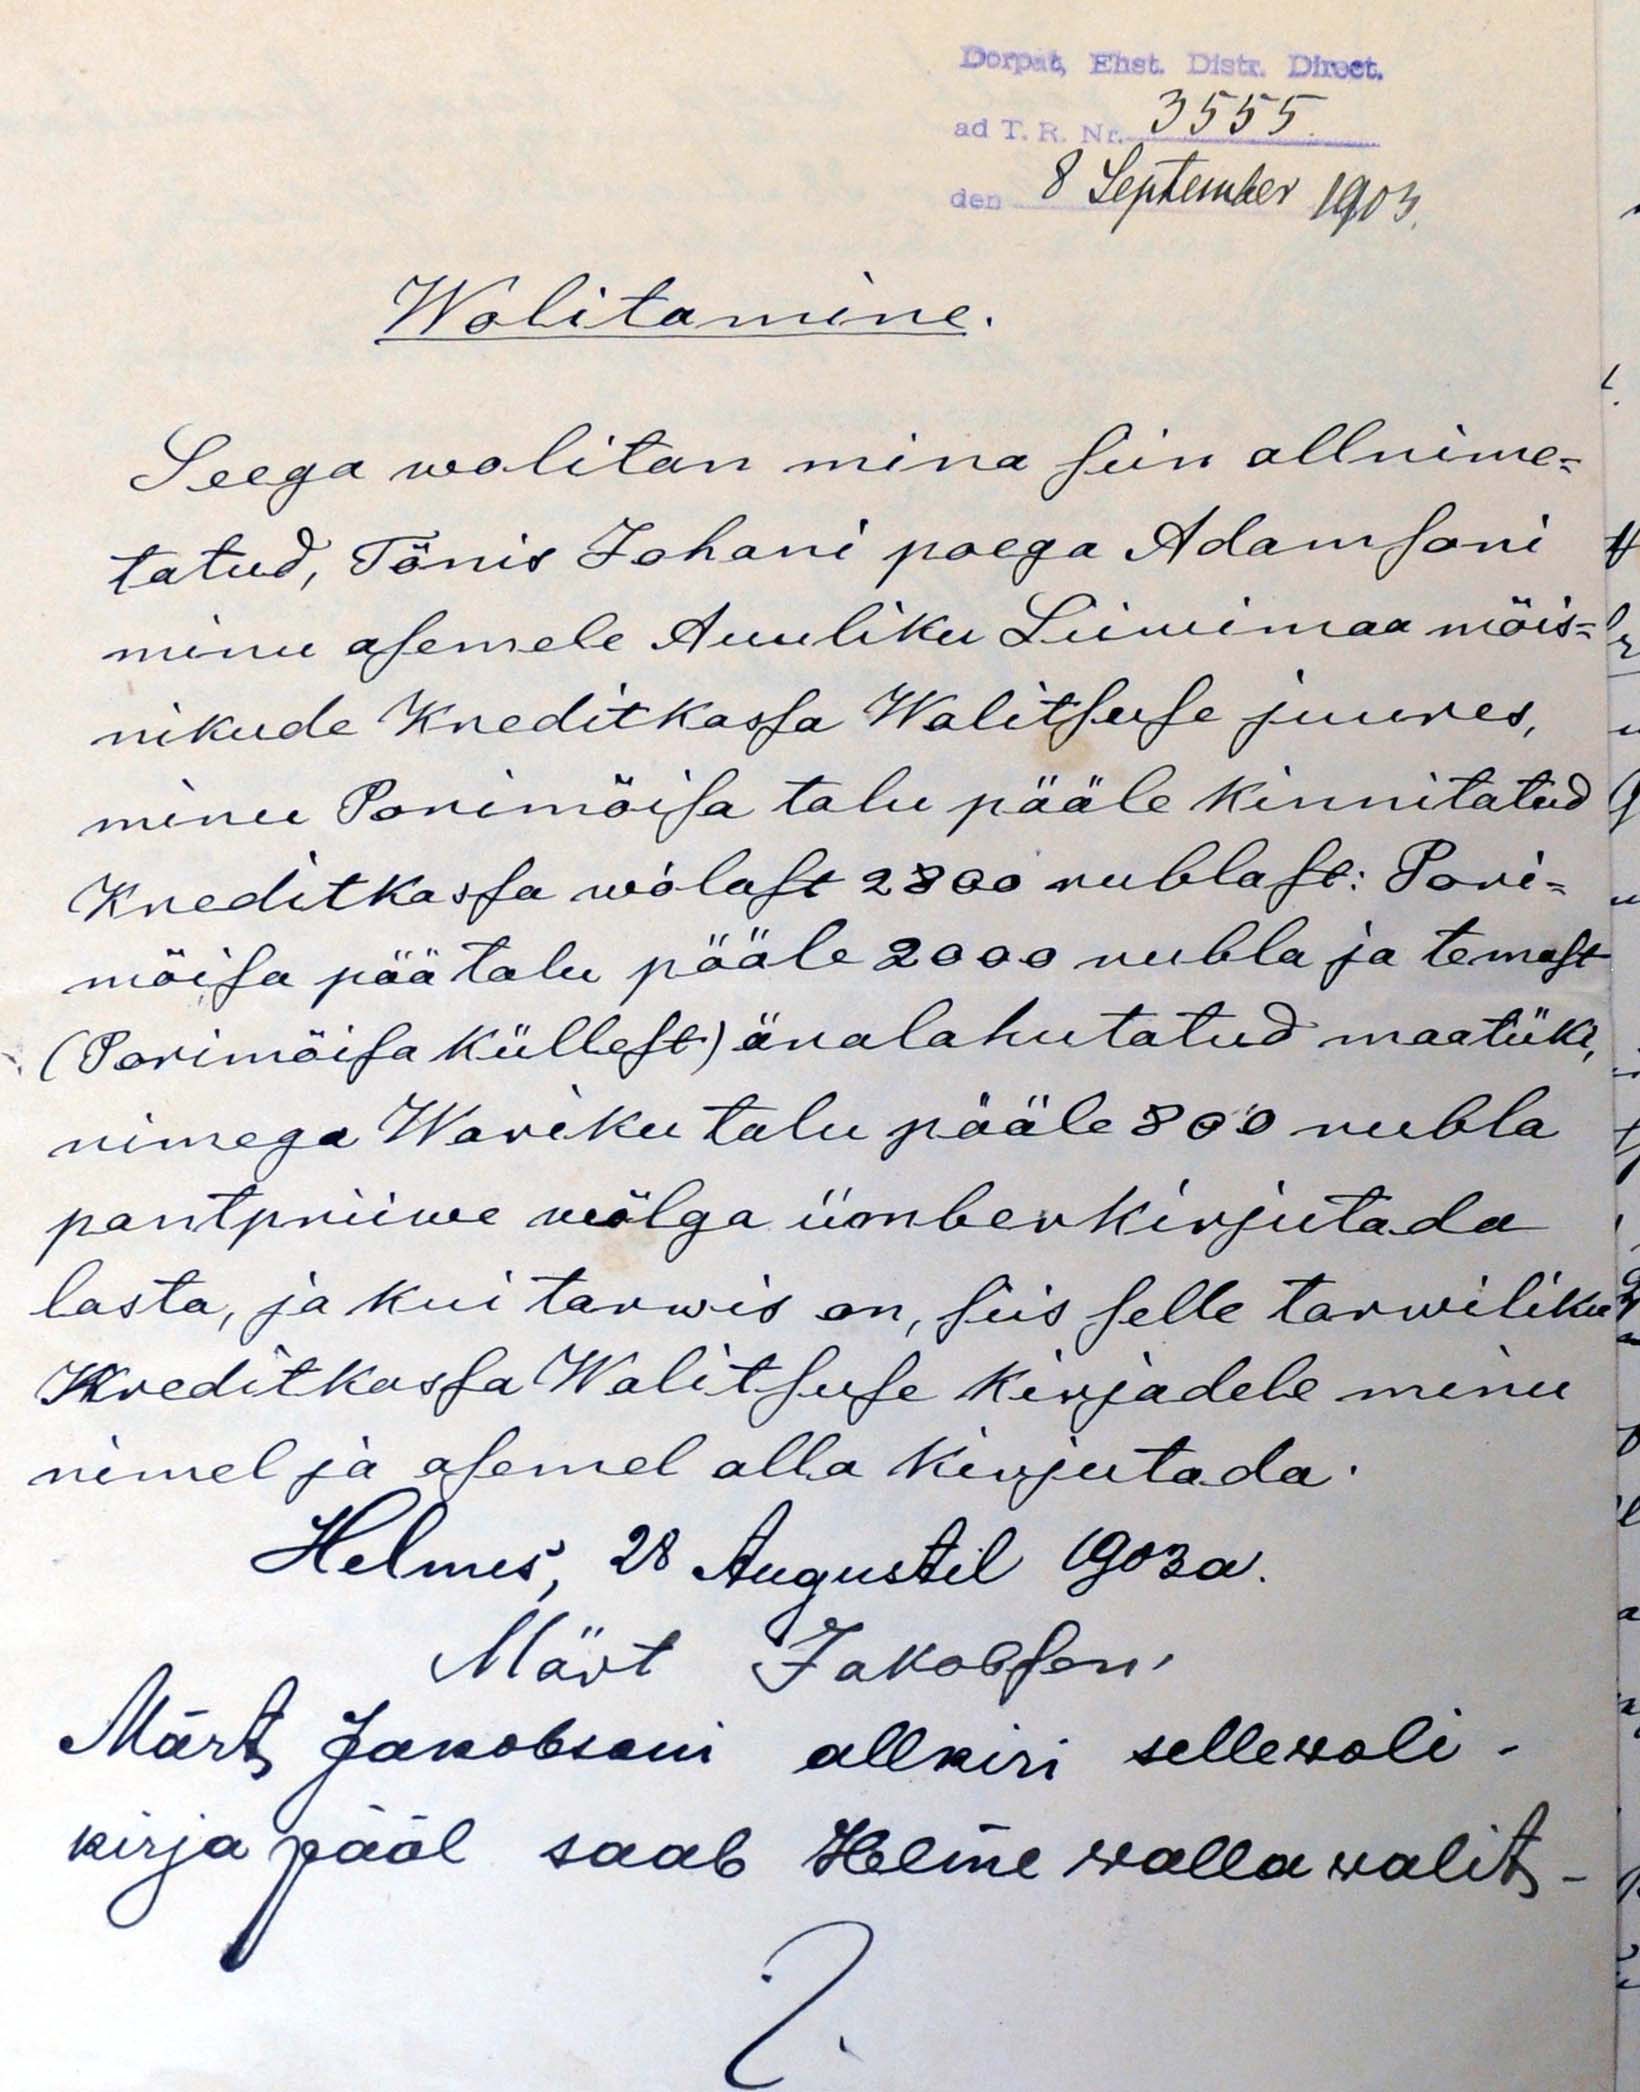 Dorpat, Ehst. Distr. Direct.
ad T. R. Nr. 3555.
den 8 September 1903.
Wolitamine.
Seega wolitan mina siin allnime=
tatud, Tõnis Johani poega Adamsoni
minu asemele Auuliku Liiwimaa mõis=
nikude Kreditkassa Walitsuse juures,
minu Porimõisa talu pääle kinnitatud
Kreditkassa wõlast 2800 rublast: Pori=
mõisa päätalu pääle 2000 rubla ja temast
(Porimõisa küllest) äralahutatud maatüki,
nimega Wariku talu pääle 800 rubla
pantpriiwe wõlga ümberkirjutada
lasta, ja kui tarwis on, siis selle tarwiliku
Kreditkassa Walitsuse kirjadele minu
nimel ja asemel alla kirjutada.
Helmes, 28 Augustil 1903 a.
Märt Jakobson,
Märt Jakobsoni allkiri sellewoli-
kirja pääl saab Helme wallawalits-